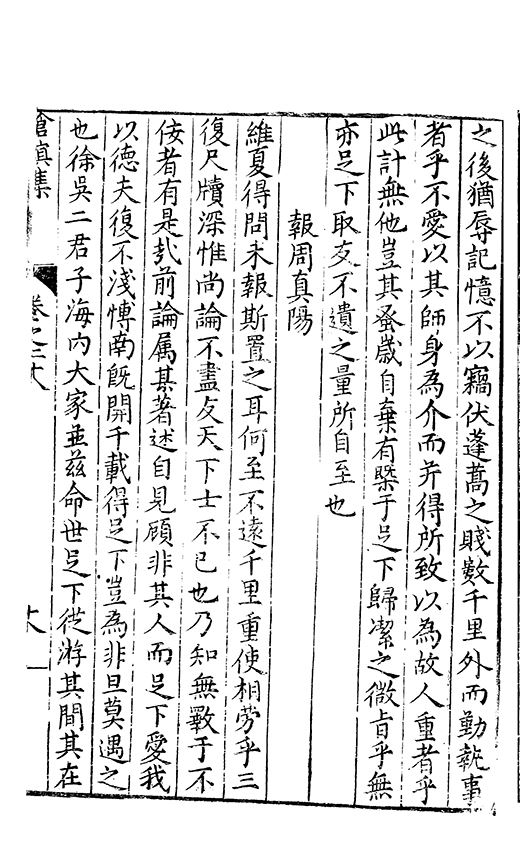 之後猶辱記憶不以竊伏蓬蒿之賤數千里外而勤執事
者乎不愛以其師身為介而并得所致以為故人重者乎
此計無他豈其蚤歲自棄有槩于足下歸潔之微旨乎無
亦足下取友不遺之量所自至也
報周真陽
維夏得問未報斯置之耳何至不遠千里重使相勞乎三
復尺牘深惟尚論不盡友天下士不已也乃知無斁于不
佞者有是哉前論属某著述自見顧非其人而足下愛我
以德夫復不淺慱南旣開千載得足下豈為非旦莫遇之
也徐吳二君子海内大家並兹命世足下從游其間其在
滄溟集
卷之三十
十一